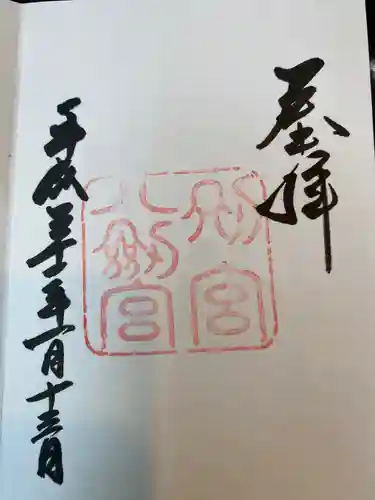 奉拝
別宮
八劔宮
平成三十一年一月十三日